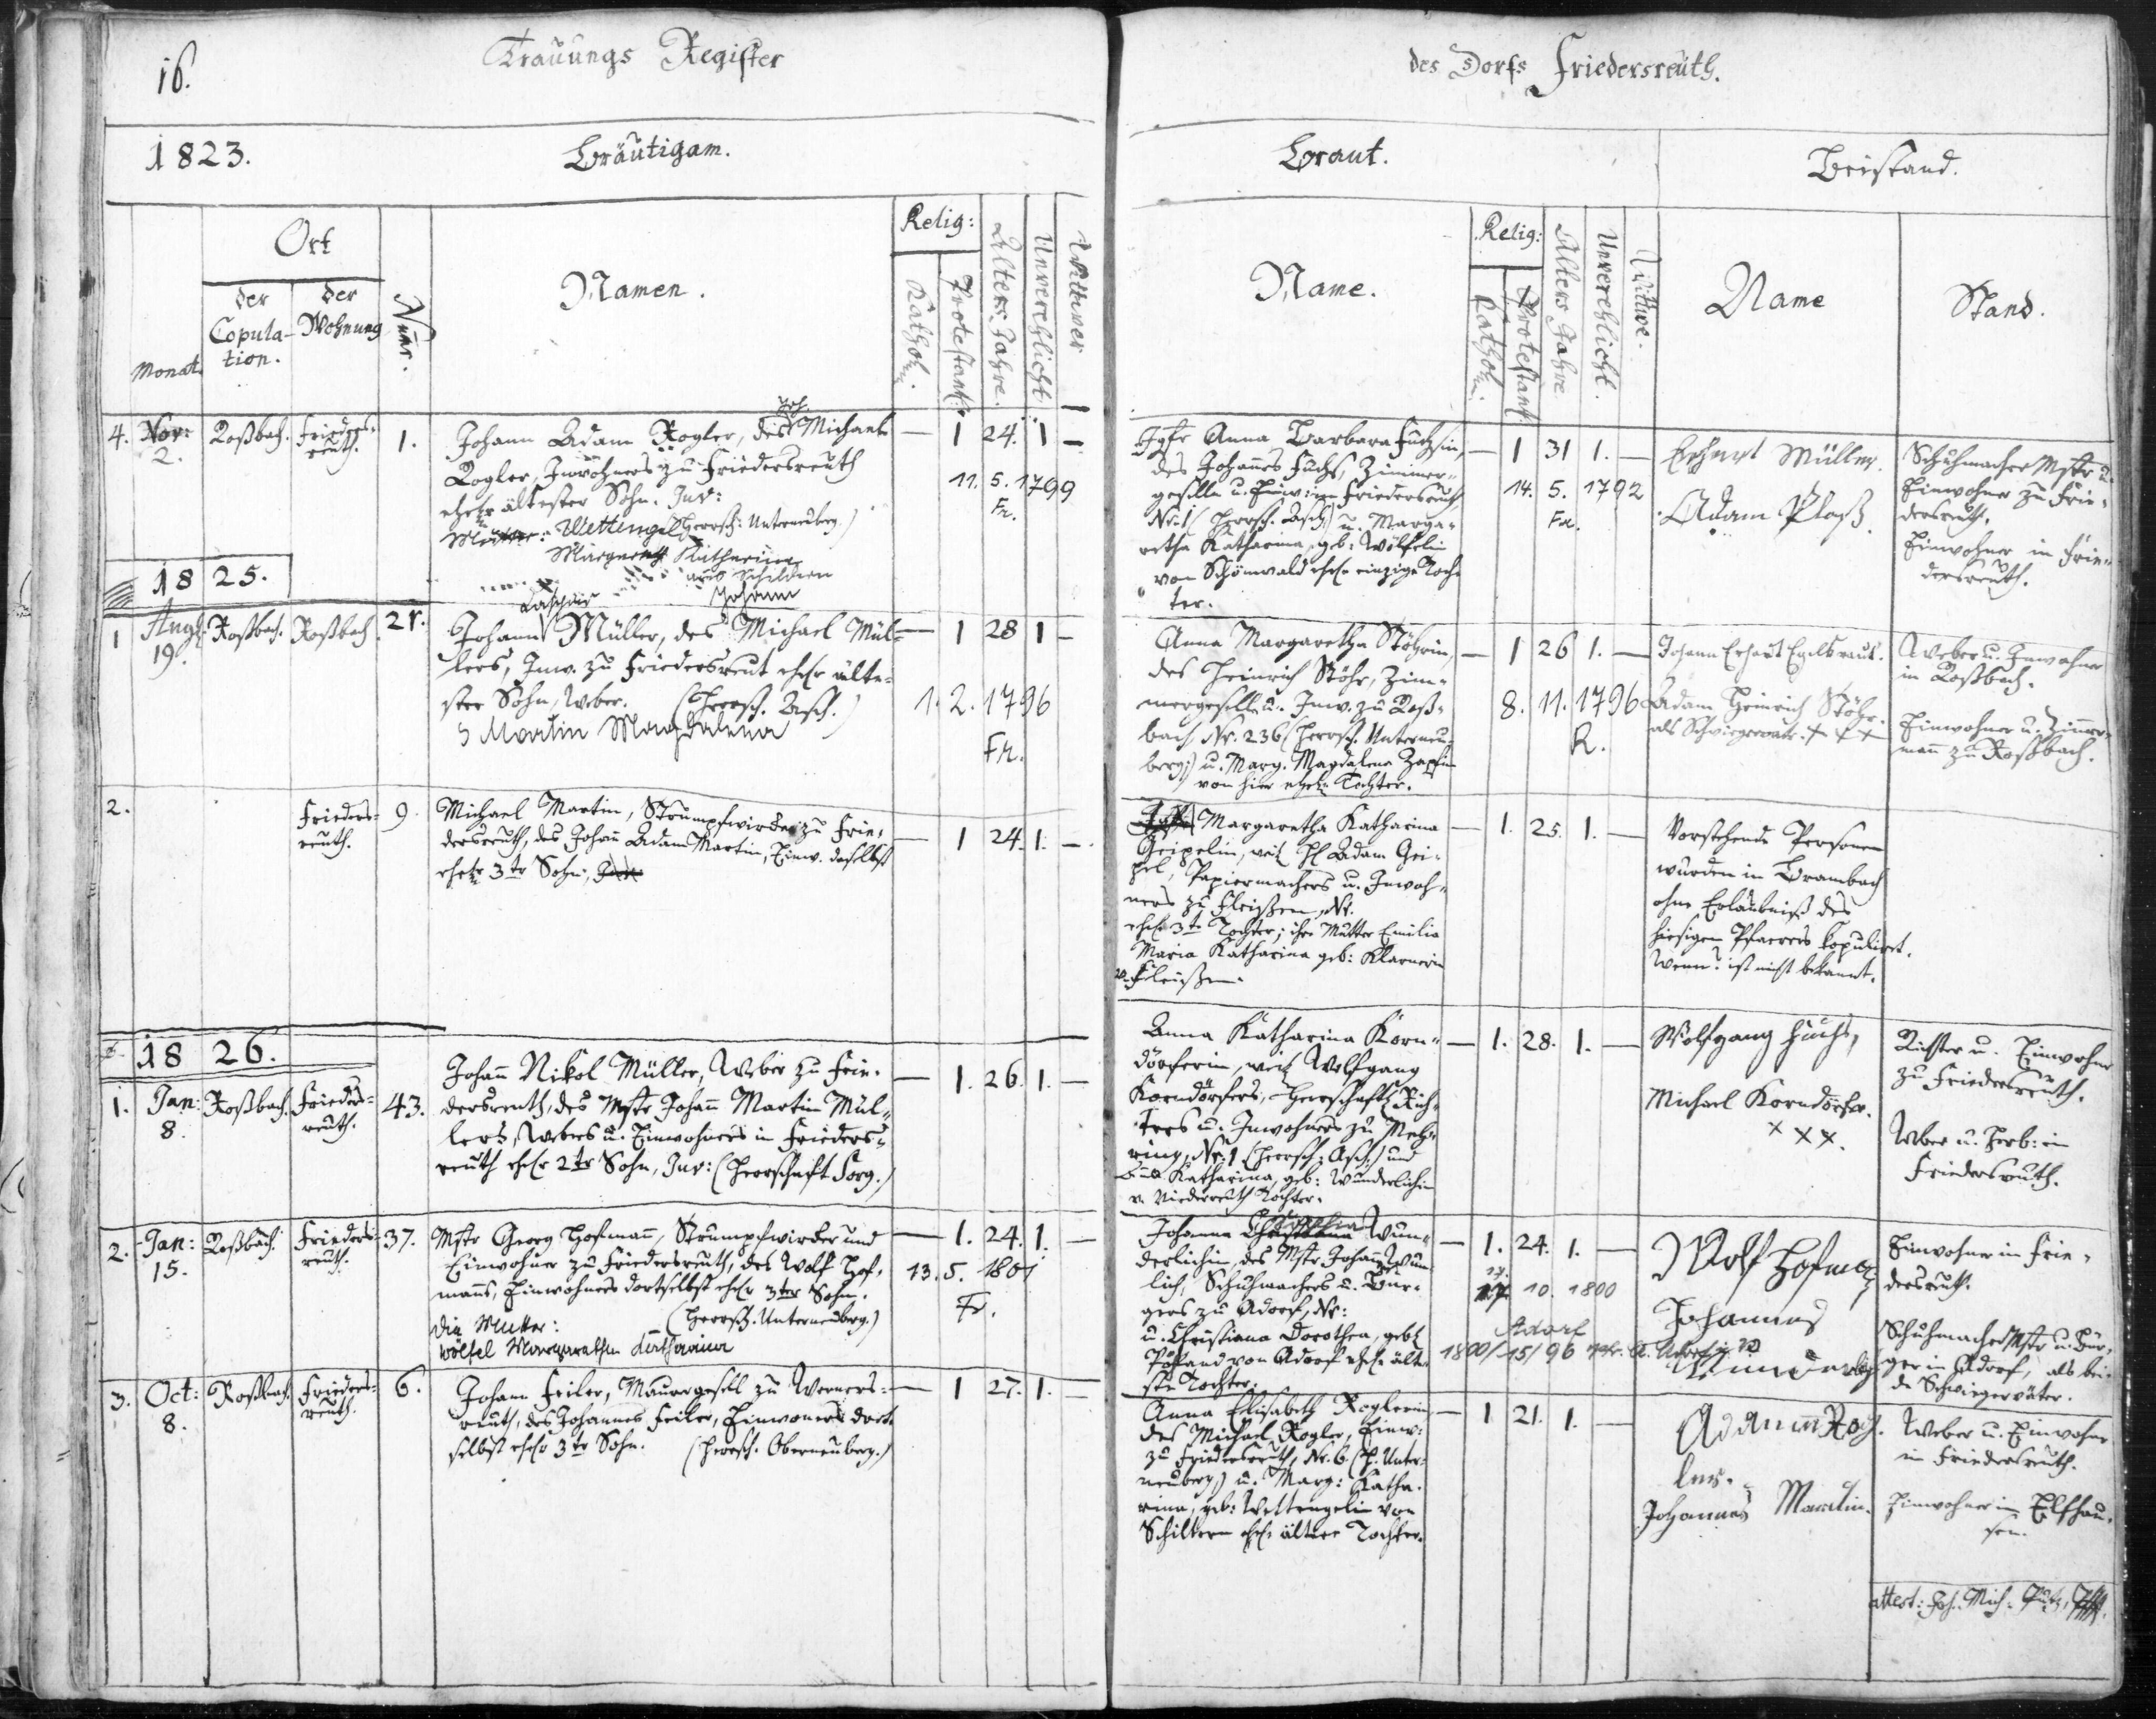 16.
Trauungs Register
des Dorfs Friedersreuth.
1823.
Bräutigam.
Braut.
Beistand.
Monat.
Ort
der Copula-
tion.
der Wohnung
Nr.
Namen.
Relig:
Kathol.
Protestant.
Alters Jahre.
Unverehlicht
Wittwer
Name.
Relig:
Kathol.
Protestant
Alters Jahre
Unverehlicht.
Wittwe.
Name
Stand.
4. Nov: 2. Roßbach. Frieders-
reuth. 1.
Johann Adam Rogler, des Joh. Michael
Rogler, Inwohners zu Friedersreuth
ehel. ältester Sohn. Inv:
Mutter: Wettengel (Herrsch: Unterneuberg.)
Margareth Katharina
aus Schildern
— 1 24. 1 —
11. 5. 1799
Fr.
Jgfr Anna Barbara Fuchsin,
des Johannes Fuchs, Zimmer-
gesells u. Einw: in Friedersreuth,
Nr. 1 (Herrsch. Asch) u. Marga-
retha Katharina, geb: Wölfelin
von Schönwald ehel. einzige Toch-
ter.
— 1 31 1. —
14. 5. 1792
Fr.
Erhart Müller.
Adam Ploß.
Schuhmacher Mstr u.
Einwohner zu Frie-
dersreuth.
Einwohner in Frie-
dersreuth.
1825.
1 Augt. 19. Roßbach. Roßbach. 21.
Kaspar
Johann
Johann Müller, des Michael Mül-
lers, Inw. zu Friedersreut ehel. älte-
ster Sohn, Weber. (Herrsch. Asch.)
Martin Magdalena
— 1 28 1 —
1. 2. 1796
Fr.
Anna Margaretha Stöhrin,
des Heinrich Stöhr, Zim-
mergesells u. Inw. zu Roß-
bach, Nr. 236 (Herrsch. Unterneu-
berg:) u. Marg. Magdalena Zapfin
von hier ehel. Tochter.
— 1 26 1. —
8. 11. 1796
R.
Johann Erhart Egelkraut.
Adam Heinrich Stöhr.
als Schwiegervater. + + +
Weber u. Inwohner
in Roßbach.
Einwohner u. Zimmer-
mann zu Roßbach.
2. Frieders-
reuth. 9.
Michael Martin, Strumpfwirker zu Frie-
dersreuth, des Johann Adam Martin, Einw. daselbst
ehel. 3ter Sohn,
— 1 24. 1. —
Margaretha Katharina
Geipelin, weil. Adam Gei-
pel, Papiermachers u. Inwoh-
ners zu Fleißen, Nr.
ehel. 3te Tochter; ihre Mutter Emilia
Maria Katharina geb: Klarnerin
v. Fleißen.
— 1. 25. 1. —
Vorstehende Personen
wurden in Brambach
ohne Erlaubniß des
hiesigen Pfarrers kopulirt.
Wenn? ist nicht bekannt.
1826.
1. Jan: 8. Roßbach. Frieders-
reuth. 43.
Johann Nikol Müller, Weber zu Frie-
dersreuth, des Mstr Johann Martin Mül-
lers, Webers u. Einwohners in Frieders-
reuth ehel. 2ter Sohn, Inv: (Herrschaft Sorg.)
— 1. 26. 1. —
Anna Katharina Korn-
dörferin, weil. Wolfgang
Korndörfers, Herrschaftl. Rich-
ters u. Inwohners zu Meh-
ring, Nr. 1 (Herrsch: Asch.) und
Eva Katharina, geb: Wunderlichin
v. Niederreuth Tochter.
— 1. 28. 1. —
Wolfgang Fuchs,
Michael Korndörfer.
x x x.
Richter u. Einwohner
zu Friedersreuth.
Weber u. Herb: in
Friedersreuth.
2. Jan: 15. Roßbach. Frieders-
reuth. 37.
Mstr Georg Hofmann, Strumpfwirker und
Einwohner zu Friedersreuth, des Wolf Hof-
manns, Einwohners dortselbst ehel. 3ter Sohn.
(Herrsch. Unterneuberg.)
Die Mutter:
Wölfel Margaretha Katharina
— 1. 24. 1. —
13. 5. 1801
Fr.
Johanna Sophia Wun-
derlichin, des Mstr Johann Wun-
lich, Schuhmachers u. Bür-
gers zu Adorf, Nr:
u. Christiana Dorothea, gebl.
Poland von Adorf ehel. älte-
ste Tochter.
— 1. 24. 1. —
17. 10. 1800
Adorf
1800/15/96
Wolf Hofman
Johannes
Wunderlich
Einwohner in Frie-
dersreuth.
Schuhmacher Mstr u. Bür-
ger in Adorf, als bei-
de Schwiegerväter.
3. Oct: 8. Roßbach. Frieders-
reuth. 6.
Johann Feiler, Maurergesell zu Werners-
reuth, des Johannes Feiler, Einwoners dort-
selbst ehel. 3ter Sohn. (Herrsch. Oberneuberg.)
— 1 27. 1. —
Anna Elisabeth Roglerin
des Michael Rogler, Einw:
zu Friedersreuth, Nr. 6. (H. Unter-
neuberg) u. Marg: Katha-
rina, geb: Wettengelin von
Schiltern ehel. ältere Tochter.
— 1 21. 1. —
Adam Rog-
ler.
Johannes Martin.
Weber u. Einwohner
in Friedersreuth.
Einwohner in Elfhau-
sen.
attest: Joh. Mich.